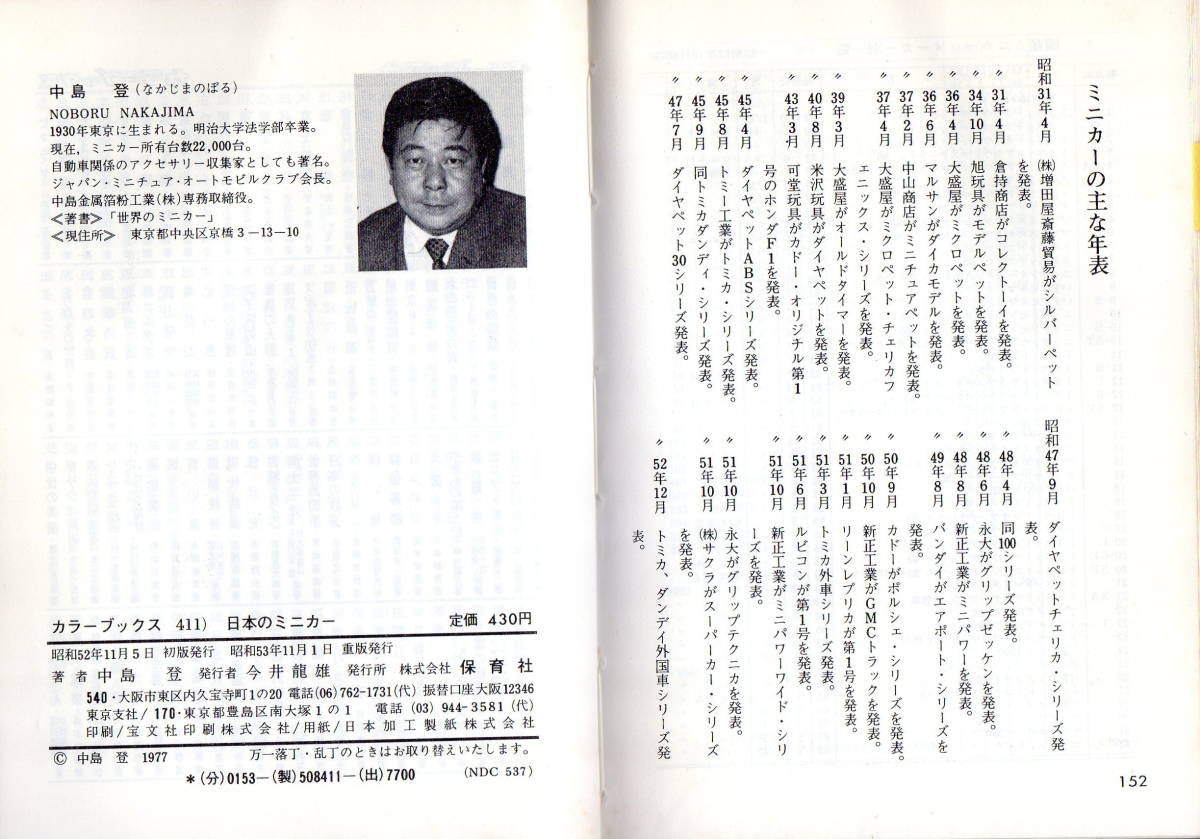 ミニカーの主な年表
昭和31年4月　㈱増田屋斎藤貿易がシルバーペット
を発表。
〃　31年4月　倉持商店がコレクトーイを発表。
〃　34年10月　旭玩具がモデルペットを発表。
〃　36年4月　大盛屋がミクロペットを発表。
〃　36年6月　マルサンがダイカモデルを発表。
〃　37年2月　中山商店がミニチュアペットを発表。
〃　37年4月　大盛屋がミクロペット・チェリカフ
ェニックス・シリーズを発表。
〃　39年3月　大盛屋がオールドタイマーを発表。
〃　40年8月　米沢玩具がダイヤペットを発表。
〃　43年3月　可堂玩具がカドー・オリジナル第1
号のホンダF1を発表。
〃　45年4月　ダイヤペットABSシリーズ発表。
〃　45年8月　トミー工業がトミカ・シリーズ発表。
〃　45年9月　同トミカダンディ・シリーズ発表。
〃　47年7月　ダイヤペット30シリーズ発表。
昭和47年9月　ダイヤペットチェリカ・シリーズ発
表。
〃　48年4月　同100シリーズ発表。
〃　48年6月　永大がグリップゼッケンを発表。
〃　48年8月　新正工業がミニパワーを発表。
〃　49年8月　バンダイがエアポート・シリーズを
発表。
〃　50年9月　カドーがポルシェ・シリーズを発表。
〃　50年10月　新正工業がGMCトラックを発表。
〃　51年1月　リーンレプリカが第1号を発表。
〃　51年3月　トミカ外車シリーズ発表。
〃　51年6月　ルビコンが第1号を発表。
〃　51年10月　新正工業がミニパワーワイド・シリ
ーズを発表。
〃　51年10月　永大がグリップテクニカを発表。
〃　51年10月　㈱サクラがスーパーカー・シリーズ
を発表。
〃　52年12月　トミカ、ダンディ外国車シリーズ発
表。
152
中島　登（なかじまのぼる）
NOBORU NAKAJIMA
1930年東京に生まれる。明治大学法学部卒業。
現在，ミニカー所有台数22,000台。
自動車関係のアクセサリー収集家としても著名。
ジャパン・ミニチュア・オートモビルクラブ会長。
中島金属箔粉工業(株)専務取締役。
≪著書≫「世界のミニカー」
≪現住所≫　東京都中央区京橋3－13－10
カラーブックス 411）　日本のミニカー　定価 430円
昭和52年11月5日　初版発行　昭和53年11月1日　重版発行
著者 中島　登　発行者 今井龍雄　発行所　株式会社 保育社
540・大阪市東区内久宝寺町1の20 電話(06)762-1731(代) 振替口座大阪12346
東京支社/170・東京都豊島区南大塚1の1　電話(03) 944-3581(代)
印刷/宝文社印刷株式会社/用紙/日本加工製紙株式会社
© 中島 登 1977　万一落丁・乱丁のときはお取り替えいたします。
＊(分)0153―(製)508411―(出)7700　(NDC 537)